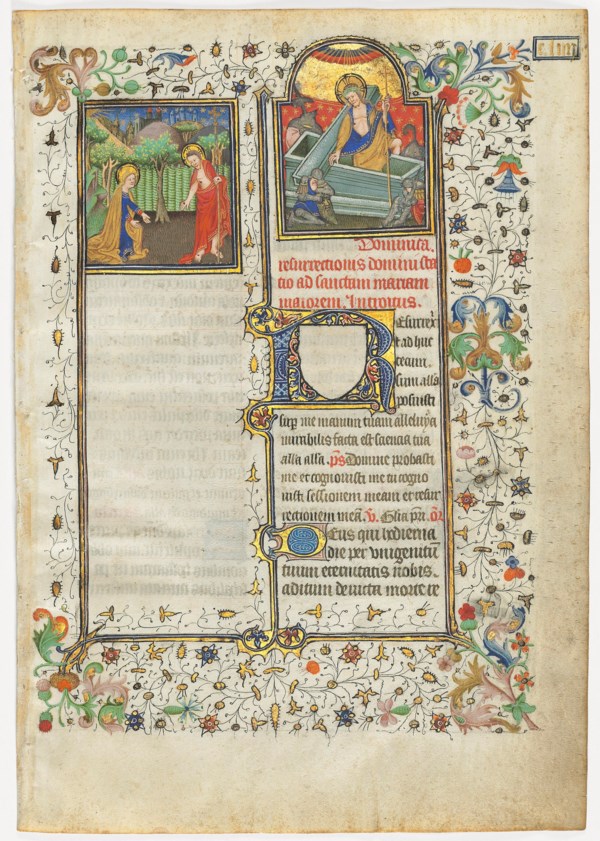 Dominica.
resurrectionis domini Sta
cio ad sanctam mariam
maiorem. Introitus.
Resurrexi
et ad huc
tecum
sum alla
posuisti
sup me manum tuam alleluya
mirabilis facta est sciencia tua
alla alla. ps Domine probasti
me et cognouisti me tu cogno
uisti sessionem meam et resur
rectionem meā. V. Glia pri. Or
Deus qui hodierna
die per vnigenitū
tuum eternitatis nobis
aditum deuicta morte re